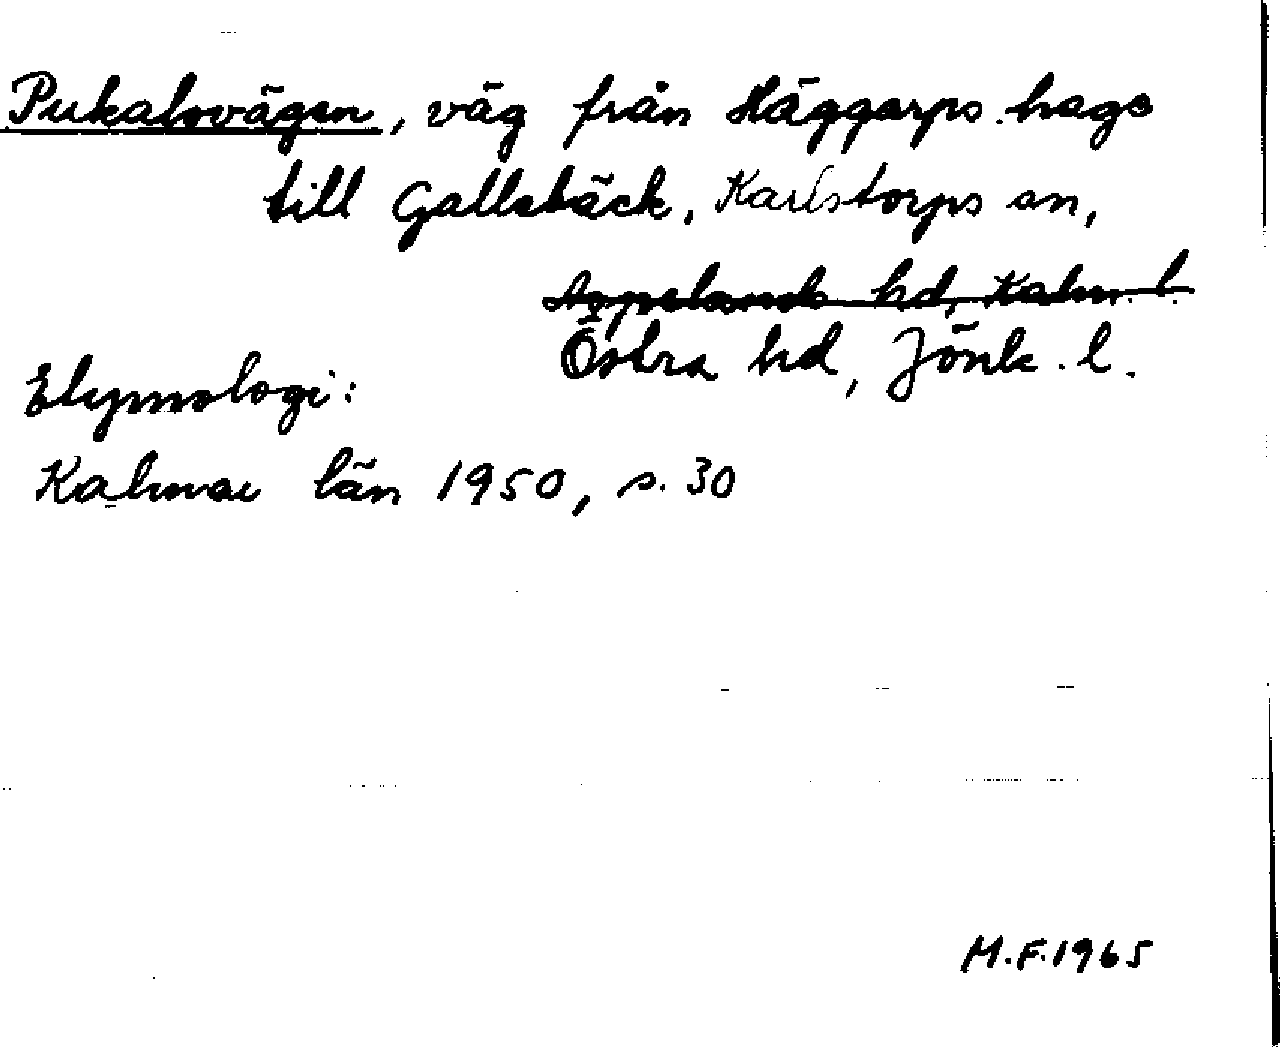 Pukalovägen, väg från Häggarps hage
till Gallebäck, Karlstorps sn,
Aspelands hd, Kalm. l.
Östra hd, Jönk. l.
Etymologi:
Kalmar län 1950, s. 30
M.F. 1965